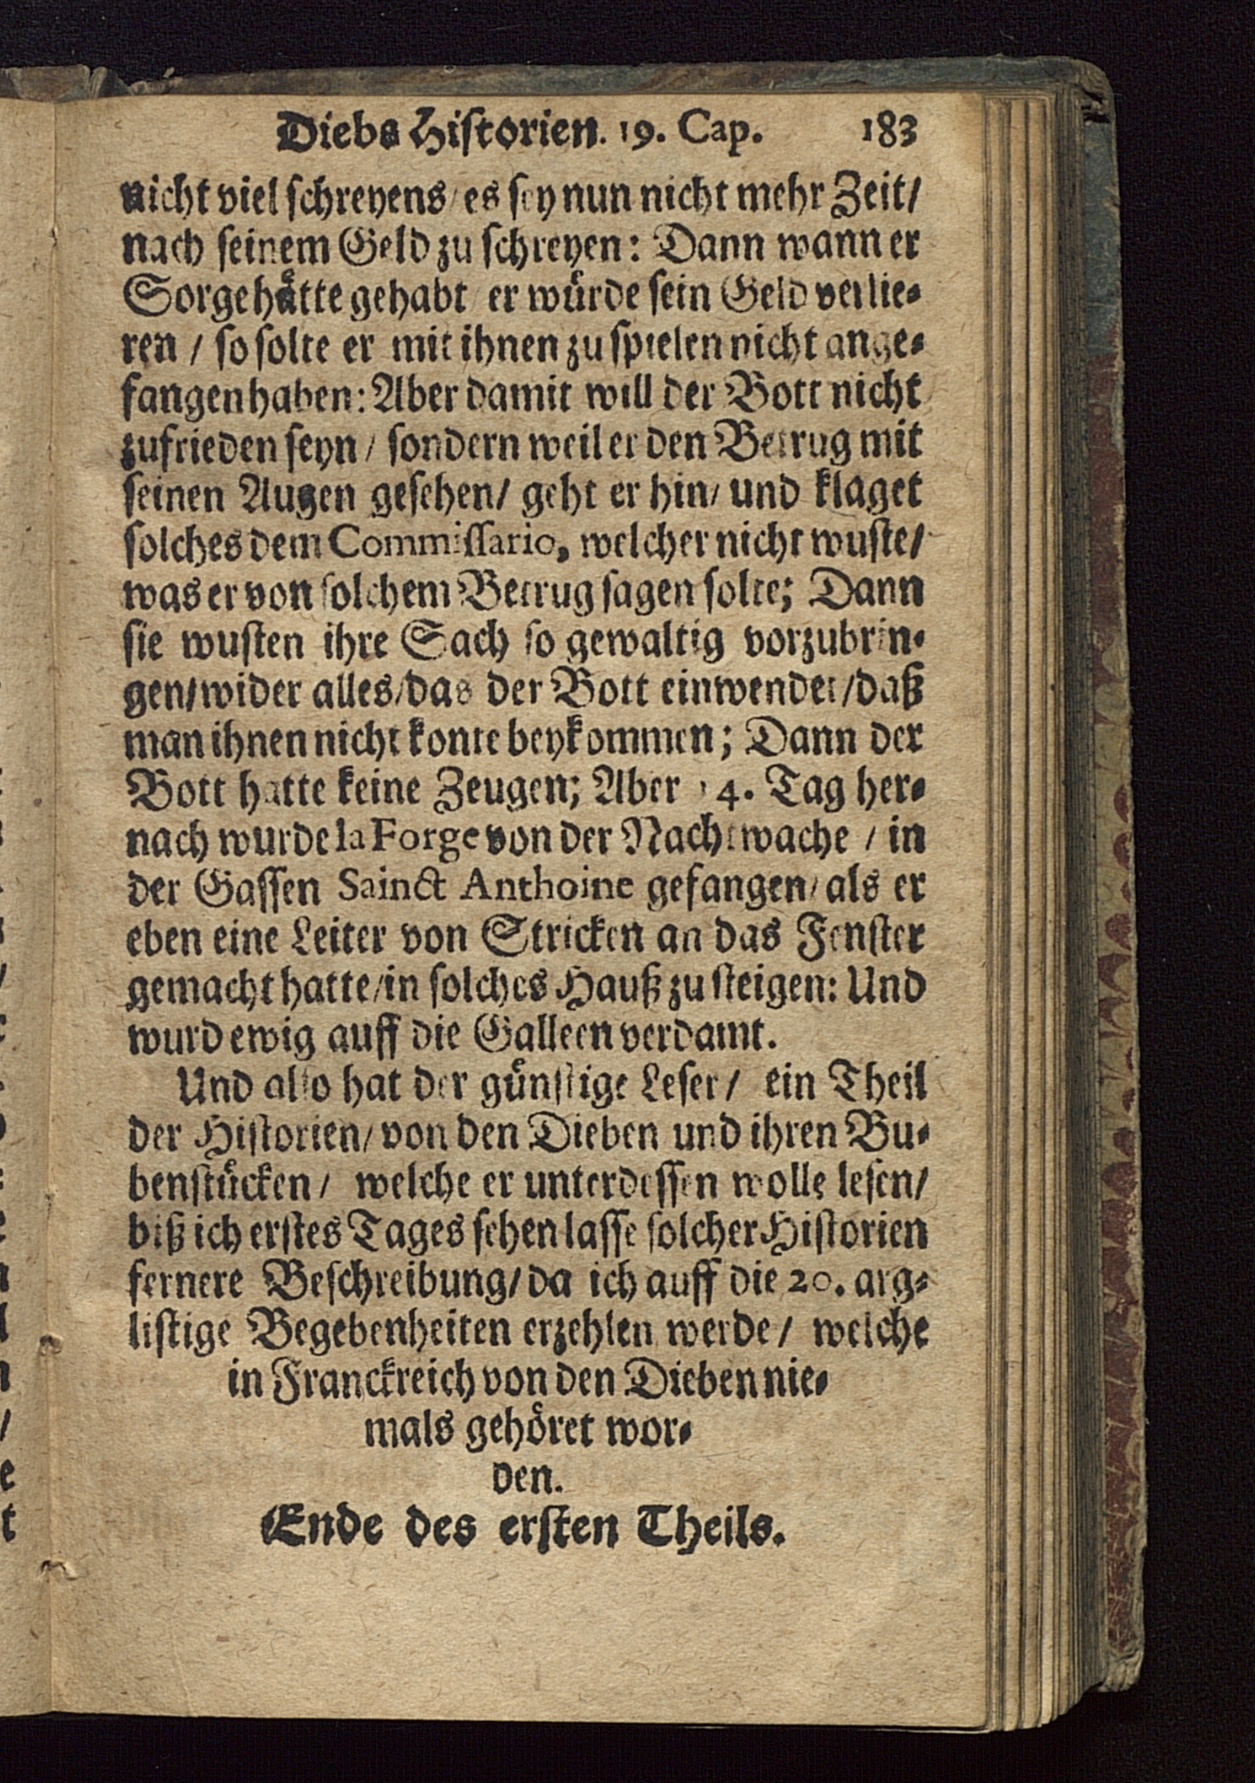 Diebs Historien. 19. Cap. 183
nicht viel schreyens/ es sey nun nicht mehr Zeit/
nach seinem Geld zu schreyen: Dann wann er
Sorge hätte gehabt/ er würde sein Geld verlie-
ren / so solte er mit ihnen zu spielen nicht ange-
fangen haben: Aber damit will der Bott nicht
zufrieden seyn / sondern weil er den Betrug mit
seinen Augen gesehen/ geht er hin/ und klaget
solches dem Commissario, welcher nicht wuste/
was er von solchem Betrug sagen solte; Dann
sie wusten ihre Sach so gewaltig vorzubrin-
gen/ wider alles/ das der Bott einwendet/ daß
man ihnen nicht konte beykommen; Dann der
Bott hatte keine Zeugen; Aber 14. Tag her-
nach wurde la Forge von der Nachtwache / in
der Gassen Sainct Anthoine gefangen/ als er
eben eine Leiter von Stricken an das Fenster
gemacht hatte/ in solches Hauß zu steigen: Und
wurd ewig auff die Galleen verdamt.
Und also hat der günstige Leser/ ein Theil
der Historien/ von den Dieben und ihren Bu-
benstücken/ welche er unterdessen wolle lesen/
biß ich erstes Tages sehen lasse solcher Historien
fernere Beschreibung/ da ich auff die 20. arg-
listige Begebenheiten erzehlen werde/ welche
in Franckreich von den Dieben nie-
mals gehöret wor-
den.
Ende des ersten Theils.